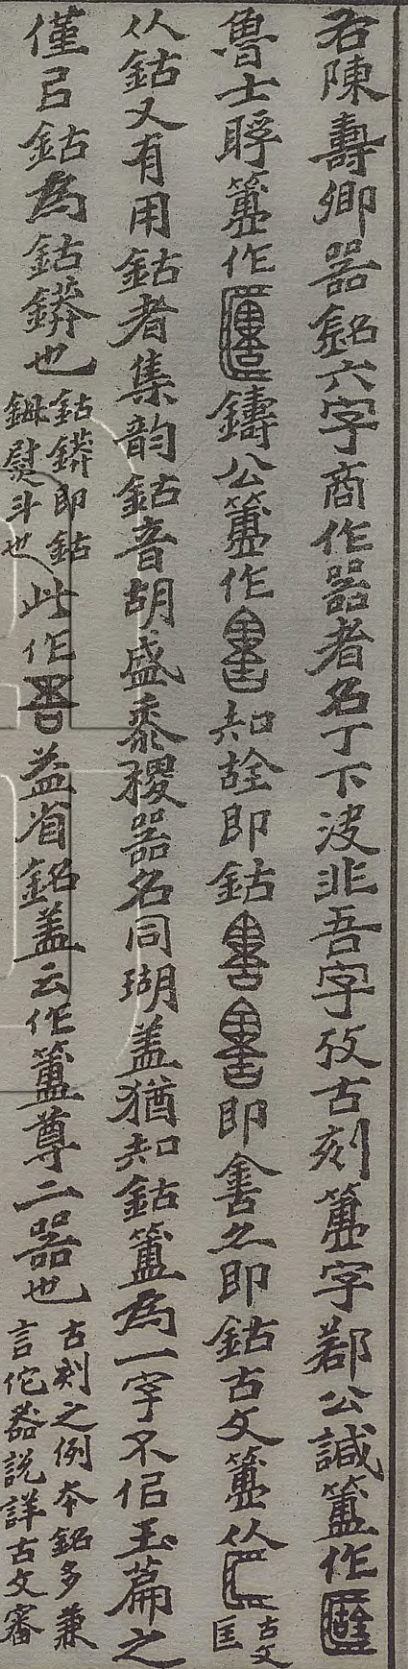 右陳壽卿器銘六字商作器者名丁下㳇非吾字攷古刻簠字鄀公諴簠作
魯士㝬簠作鑄公簠作知䛑即鈷即之即鈷古文簠从匚古文匡
从鈷又有用鈷者集韵鈷音胡盛黍稷器名同瑚盖猶知鈷簠為一字不侣玉篇之
僅㠯鈷為鈷鏻也鈷鏻即鈷鉧熨斗也此作益省銘盖云作簠尊二器也古刻之例本銘多兼言佗器説詳古文審